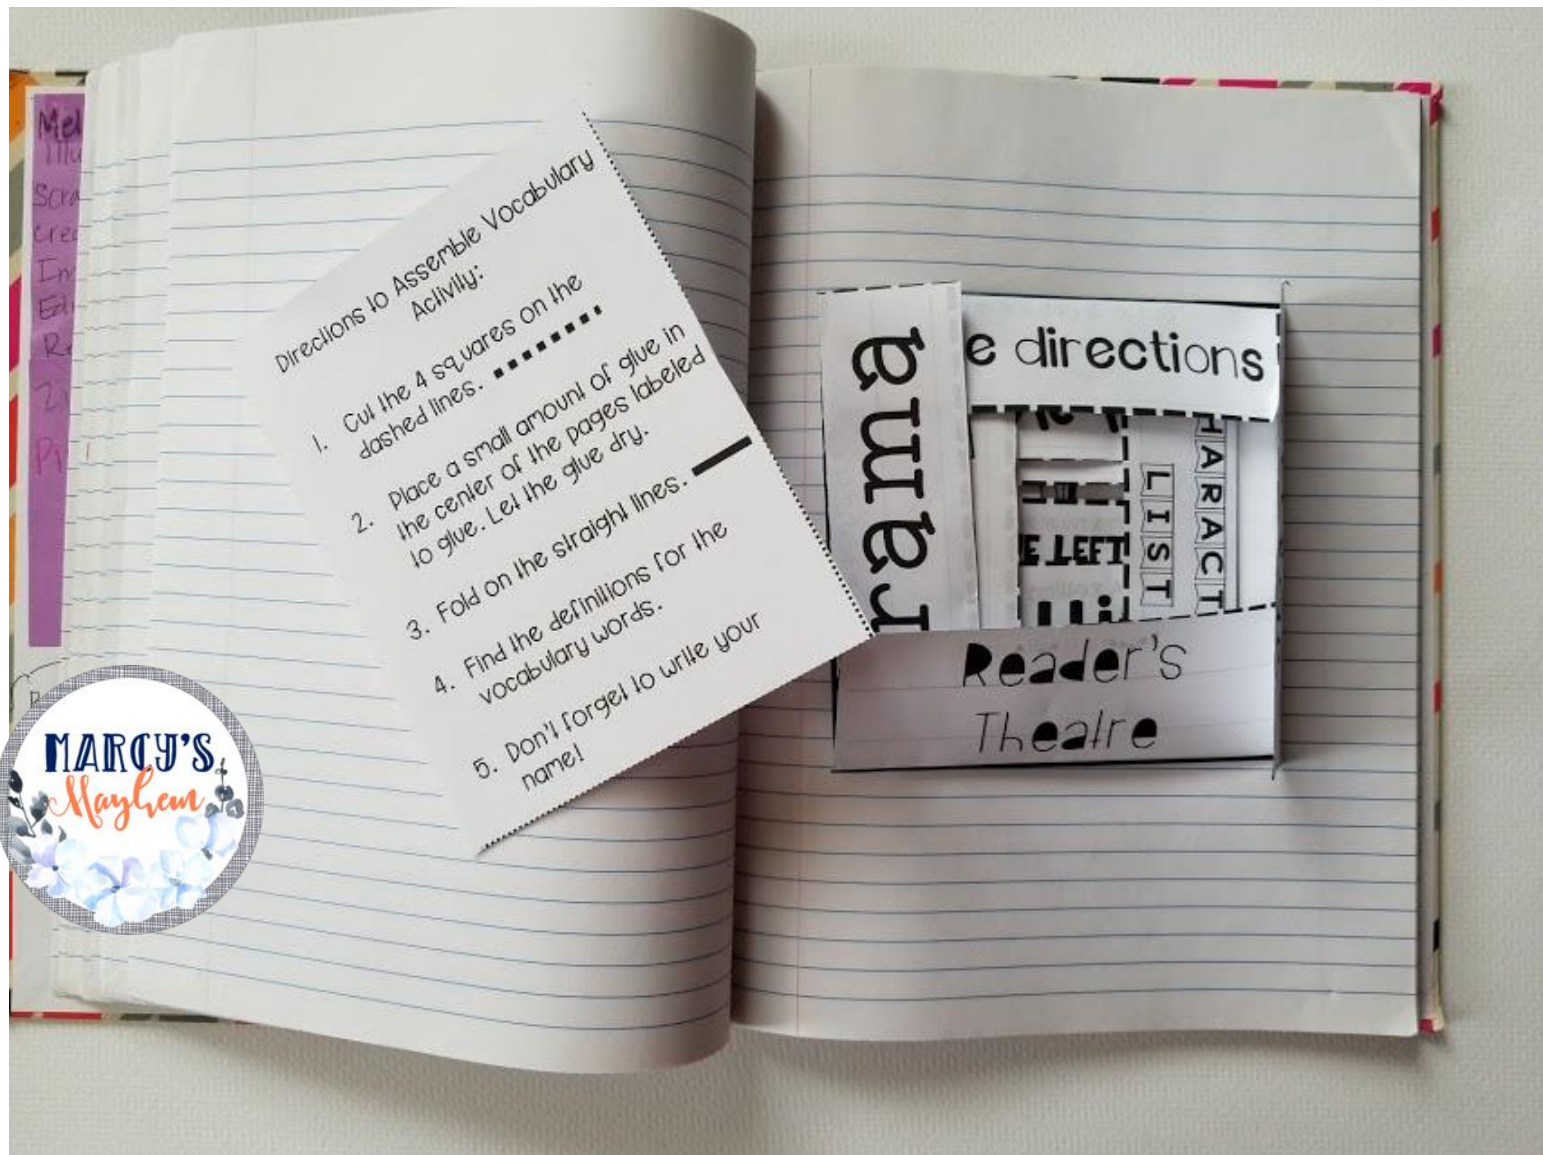 Directions to Assemble Vocabulary
Activity:
1. Cut the 4 squares on the
dashed lines.
2. Place a small amount of glue in
the center of the pages labeled
to glue. Let the glue dry.
3. Fold on the straight lines.
4. Find the definitions for the
vocabulary words.
5. Don't forget to write your
name!
rama
e directions
HARACT
LIST
E LEFT
Reader's
Theatre
Mel
Scra
MARCY'S
Mayhem